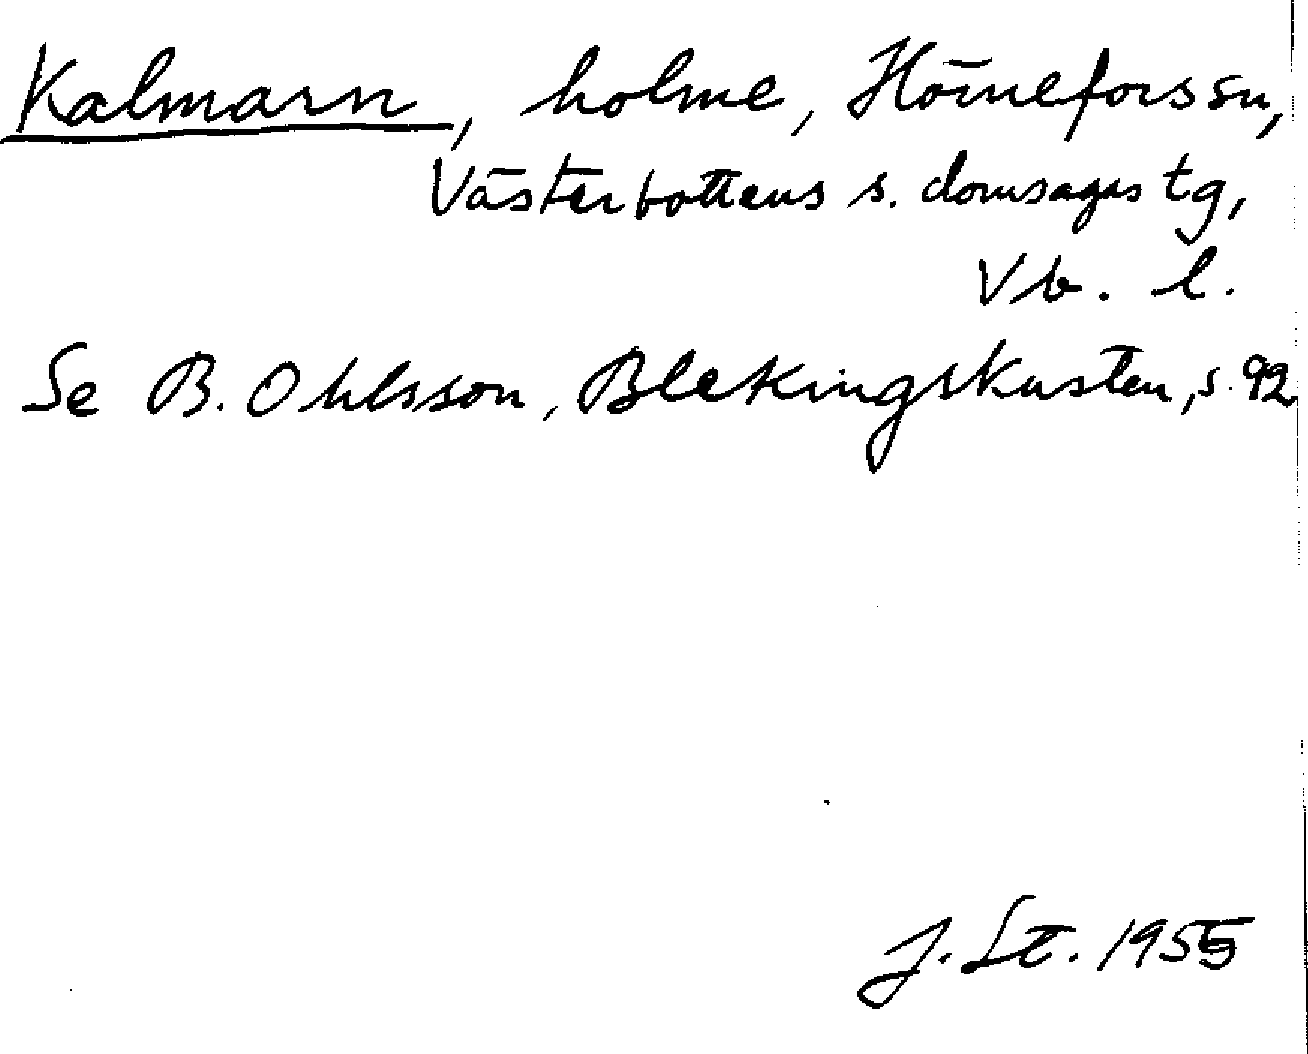 Kalmarn, holme, Hörneforssn,
Västerbottens s. domsagas tg,
Vb. l.
Se B. Ohlsson, Blekingskusten, s. 92
J. St. 1955